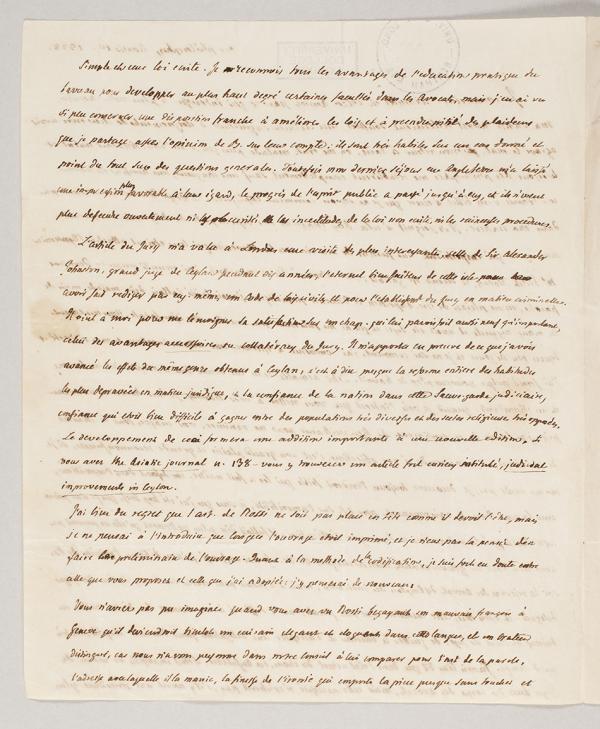 simple et une loi ecrite. Je reconnois tous les avantages de l'education pratique du
barreau pour developper au plus haut degré certaines facultés dans les Avocats, mais j'en ai vu
si peu conserver une disposition franche à améliorer les lois et à prendre pitié des plaideurs
que je partage assez l'opinion de B. sur leur compte: ils sont très habiles sur un cas donné et
point du tout sur des questions generales. Toutefois mon dernier séjour en Angleterre m'a laissé
une impression plus favorable à leur égard, le progrès de l'esprit public a passé jusqu'à eux, et ils n'osent
plus defendre ouvertement ni l'obscurité et les incertitudes de la loi non ecrite, ni les procedures.
L'article du Jury m'a valu à Londres une visite des plus interessantes, celle de Sir Alexander
Johnston, grand juge de Ceylan pendant dix années, l'eternel bienfaiteur de cette isle pour
avoir fait rediger par eux-mêmes un Code de lois civiles et pour l'établissement du Jury en matieres criminelles.
Il vint à moi pour me témoigner sa satisfaction sur un chap. qui lui paroissoit aussi neuf qu'important,
celui des avantages accessoires ou collatéraux du Jury. Il m'apporta en preuve de ce que j'avois
avancé les effets du même genre obtenus à Ceylan, c'est à dire presque la reforme entiere des habitudes
les plus depravées en matiere juridique, & la confiance de la nation dans cette sauve-garde judiciaire,
confiance qui etoit bien difficile à gagner entre des populations très diverses et des sectes religieuses très opposées.
Le developpement de ceci formera une addition importante à une nouvelle edition. Si
vous avez the Asiatic journal n. 138 vous y trouverez un article fort curieux intitulé, judicial
improvements in Ceylon.
J'ai bien du regret que l'art. de Rossi ne soit pas placé en tête comme il devoit l'être, mais
je ne pensai à l'introduire que lorsque l'ouvrage etoit imprimé, et je n'eus pas la pensée d'en
faire preliminaire de l'ouvrage. Quant à la methode de la codification, je suis fort en doute entre
celle que vous proposez et celle que j'ai adoptée: j'y penserai de nouveau.
Vous n'auriez pas pu imaginer quand vous avez vu Rossi begayant un mauvais françois à
Geneve qu'il deviendroit bientôt un ecrivain elegant et eloquent dans cette langue, et un orateur
distingué, car nous n'avons personne dans notre Conseil à lui comparer pour l'art de la parole,
l'adresse avec laquelle il la manie, la finesse de l'ironie qui emporte la piece presque sans toucher et